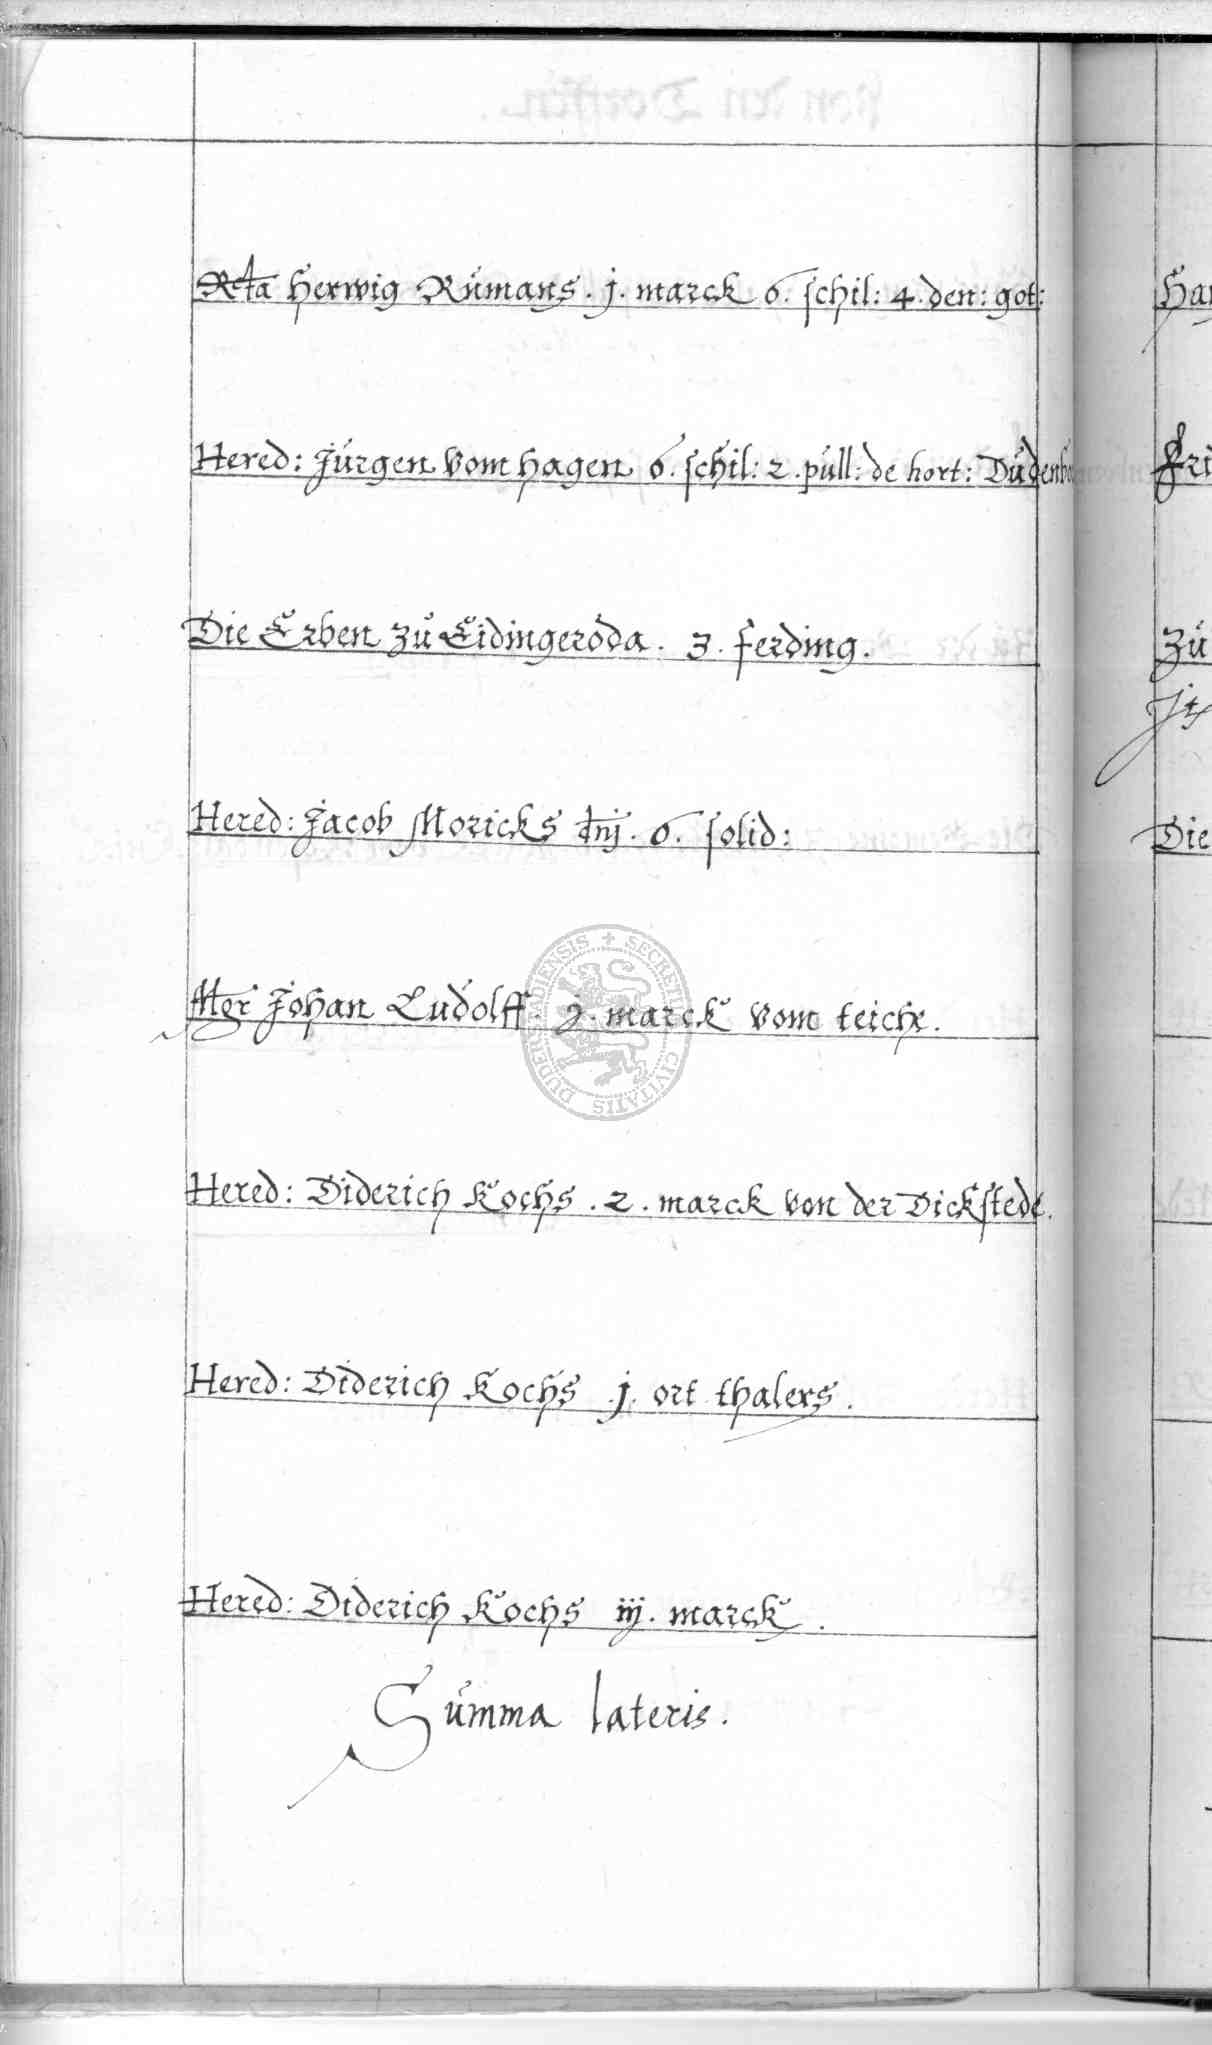 Rta Herwig Rümans . j . marck 6. schil: 4. den: got:
Hered: Jürgen vom Hagen 6. schil: 2. püll: de hort: Düdenbo
Die Erben zü Eidingeroda . 3 . ferding .
Hered: Jacob Moricks dnj . 6. solid:
Mgr Johan Ludolff . j . marck vom teiche .
Hered: Diderich Kochs . 2 . marck von der Dickstede .
Hered: Diderich Kochs . j . ort thalers .
Hered: Diderich Kochs iij . marck .
Summa lateris .
Fri
Zü
Die
SECRETU CIVITATIS DUDERSTADIENSIS